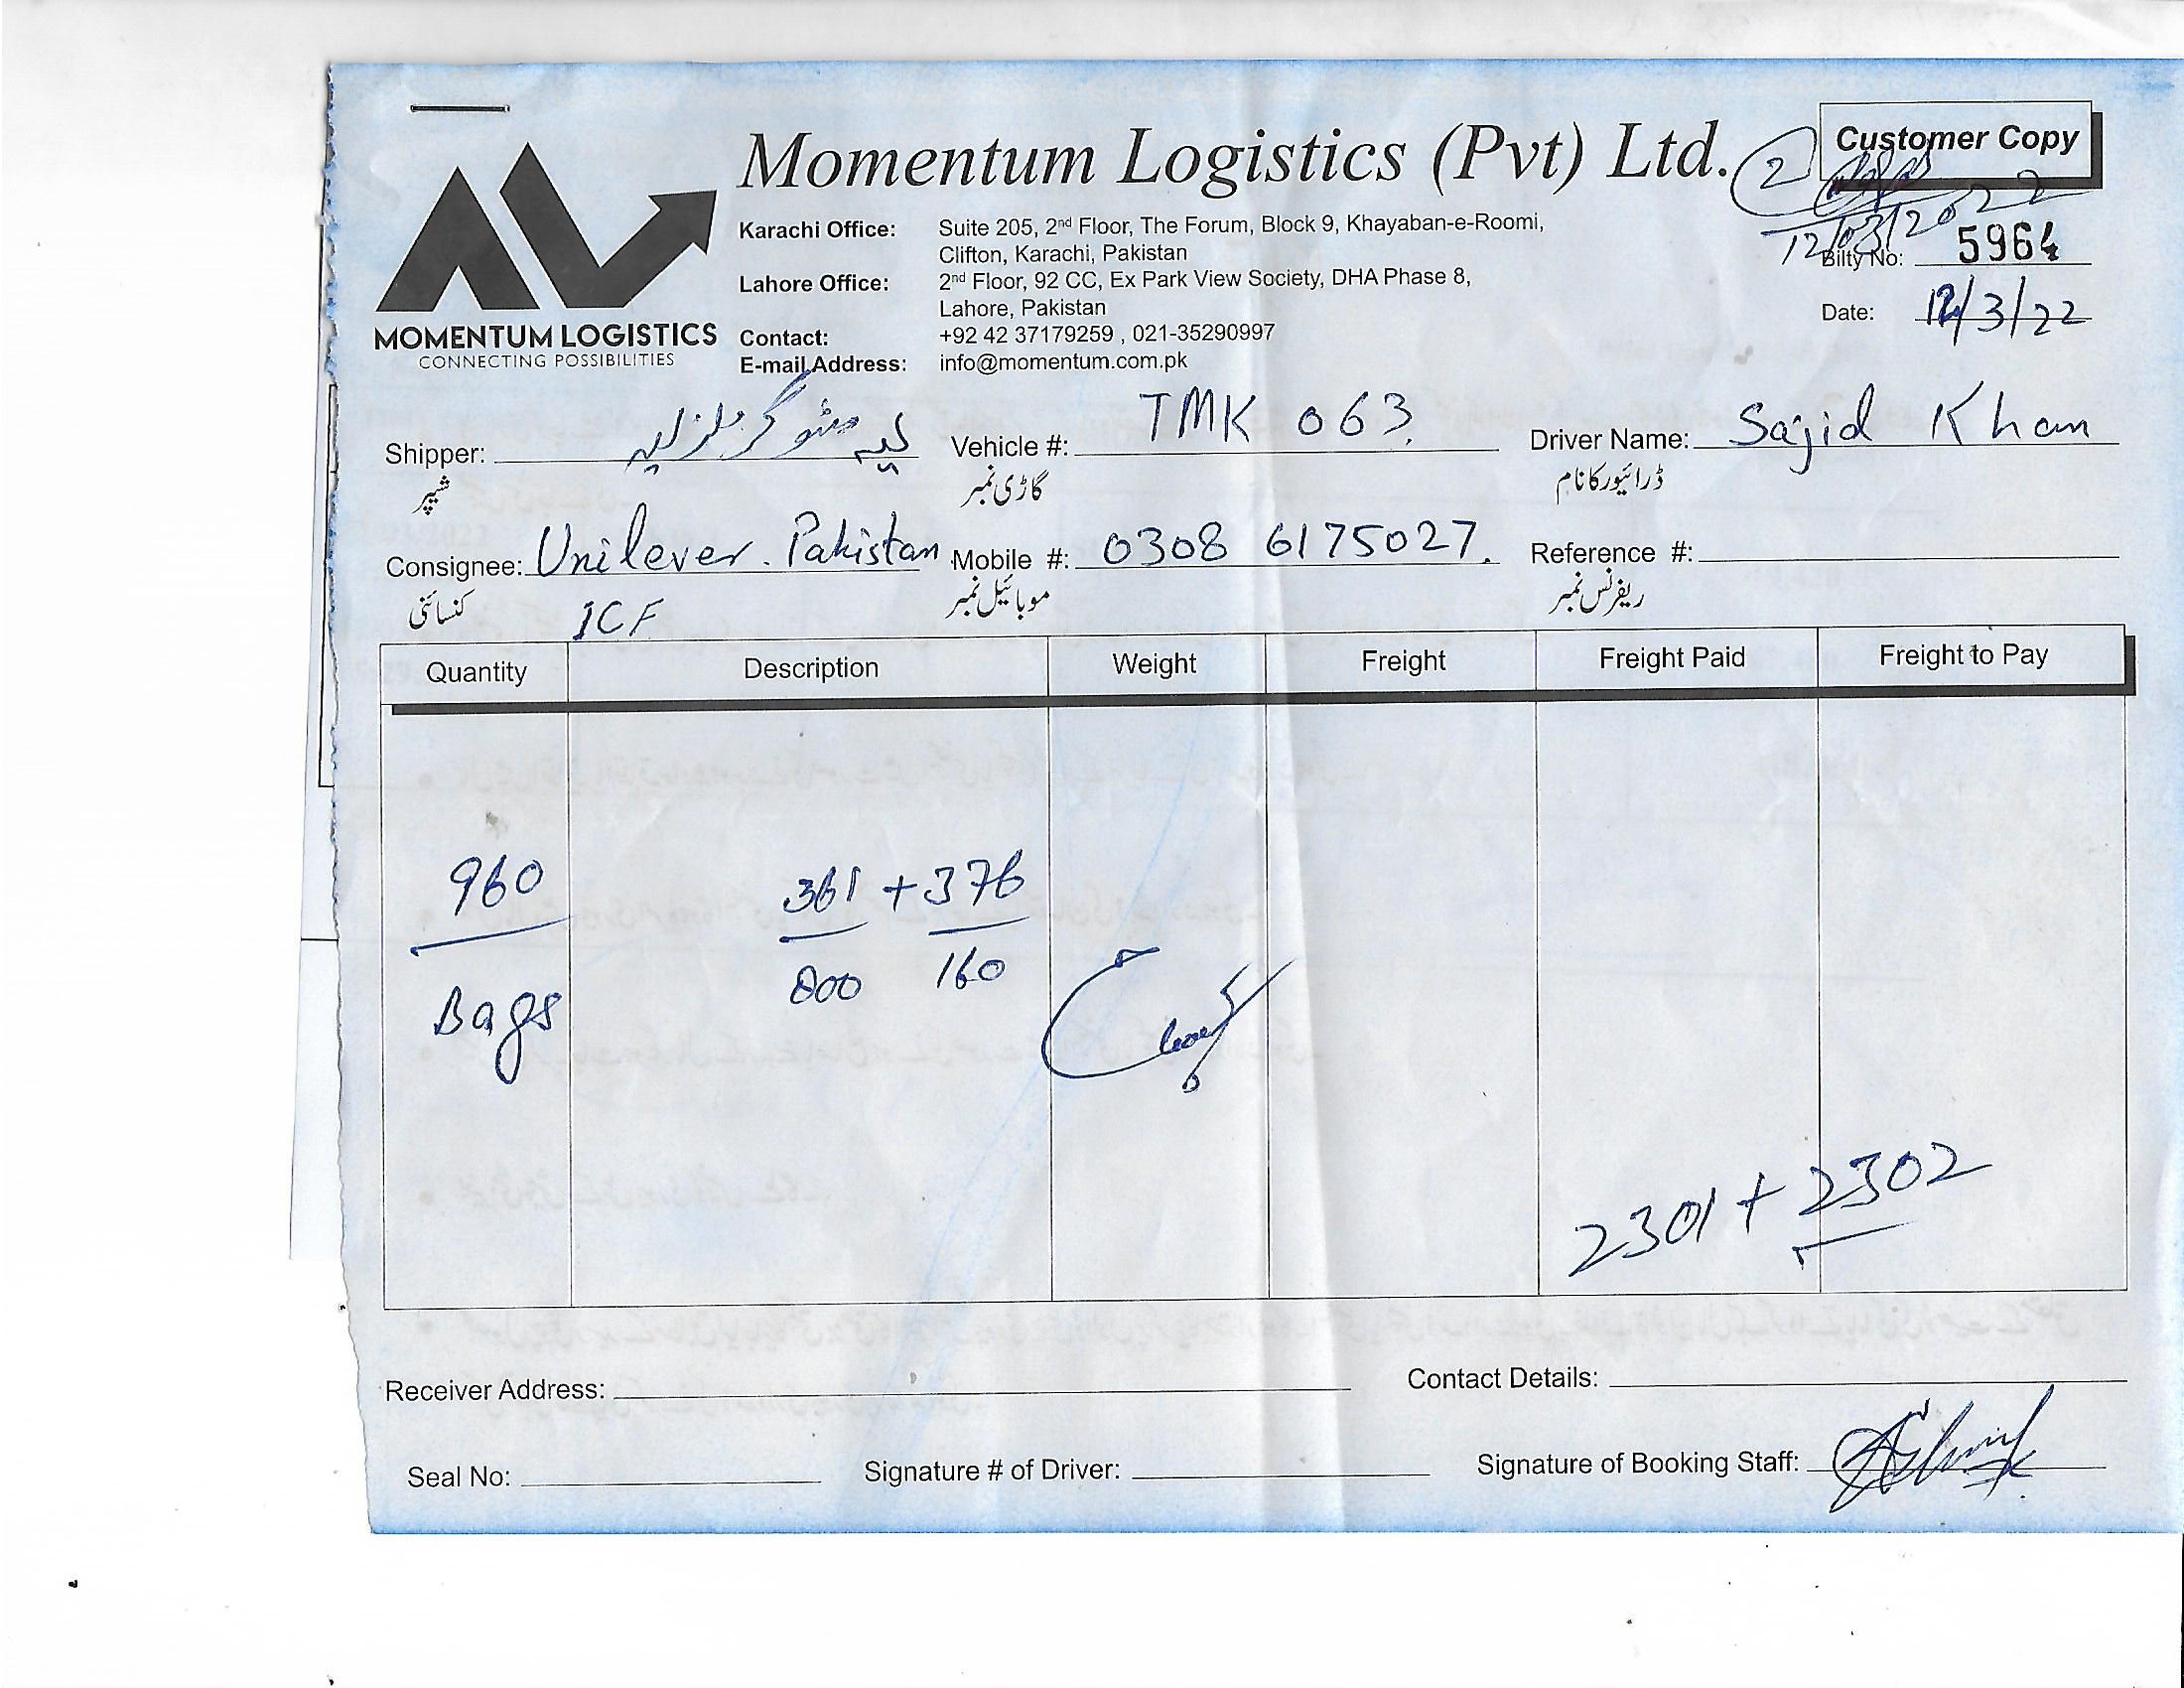 Momentum Logistics (Pvt) Ltd.
Customer Copy
2
12/03/2022
MOMENTUM LOGISTICS
CONNECTING POSSIBILITIES
Karachi Office: Suite 205, 2nd Floor, The Forum, Block 9, Khayaban-e-Roomi,
Clifton, Karachi, Pakistan
Lahore Office: 2nd Floor, 92 CC, Ex Park View Society, DHA Phase 8,
Lahore, Pakistan
Contact: +92 42 37179259 , 021-35290997
E-mail Address: info@momentum.com.pk
Bilty No: 5964
Date: 12/3/22
Shipper: لیہ شوگر ملز لیہ Vehicle #: TMK 063 Driver Name: Sajid Khan
شپر گاڑی نمبر ڈرائیور کا نام
Consignee: Unilever. Pakistan Mobile #: 0308 6175027. Reference #:
کنسائنی ICF موبائیل نمبر ریفرنس نمبر
Quantity Description Weight Freight Freight Paid Freight to Pay
960 361 + 376
Bags 800 160
2301 + 2302
Receiver Address: Contact Details:
Seal No: Signature # of Driver: Signature of Booking Staff: